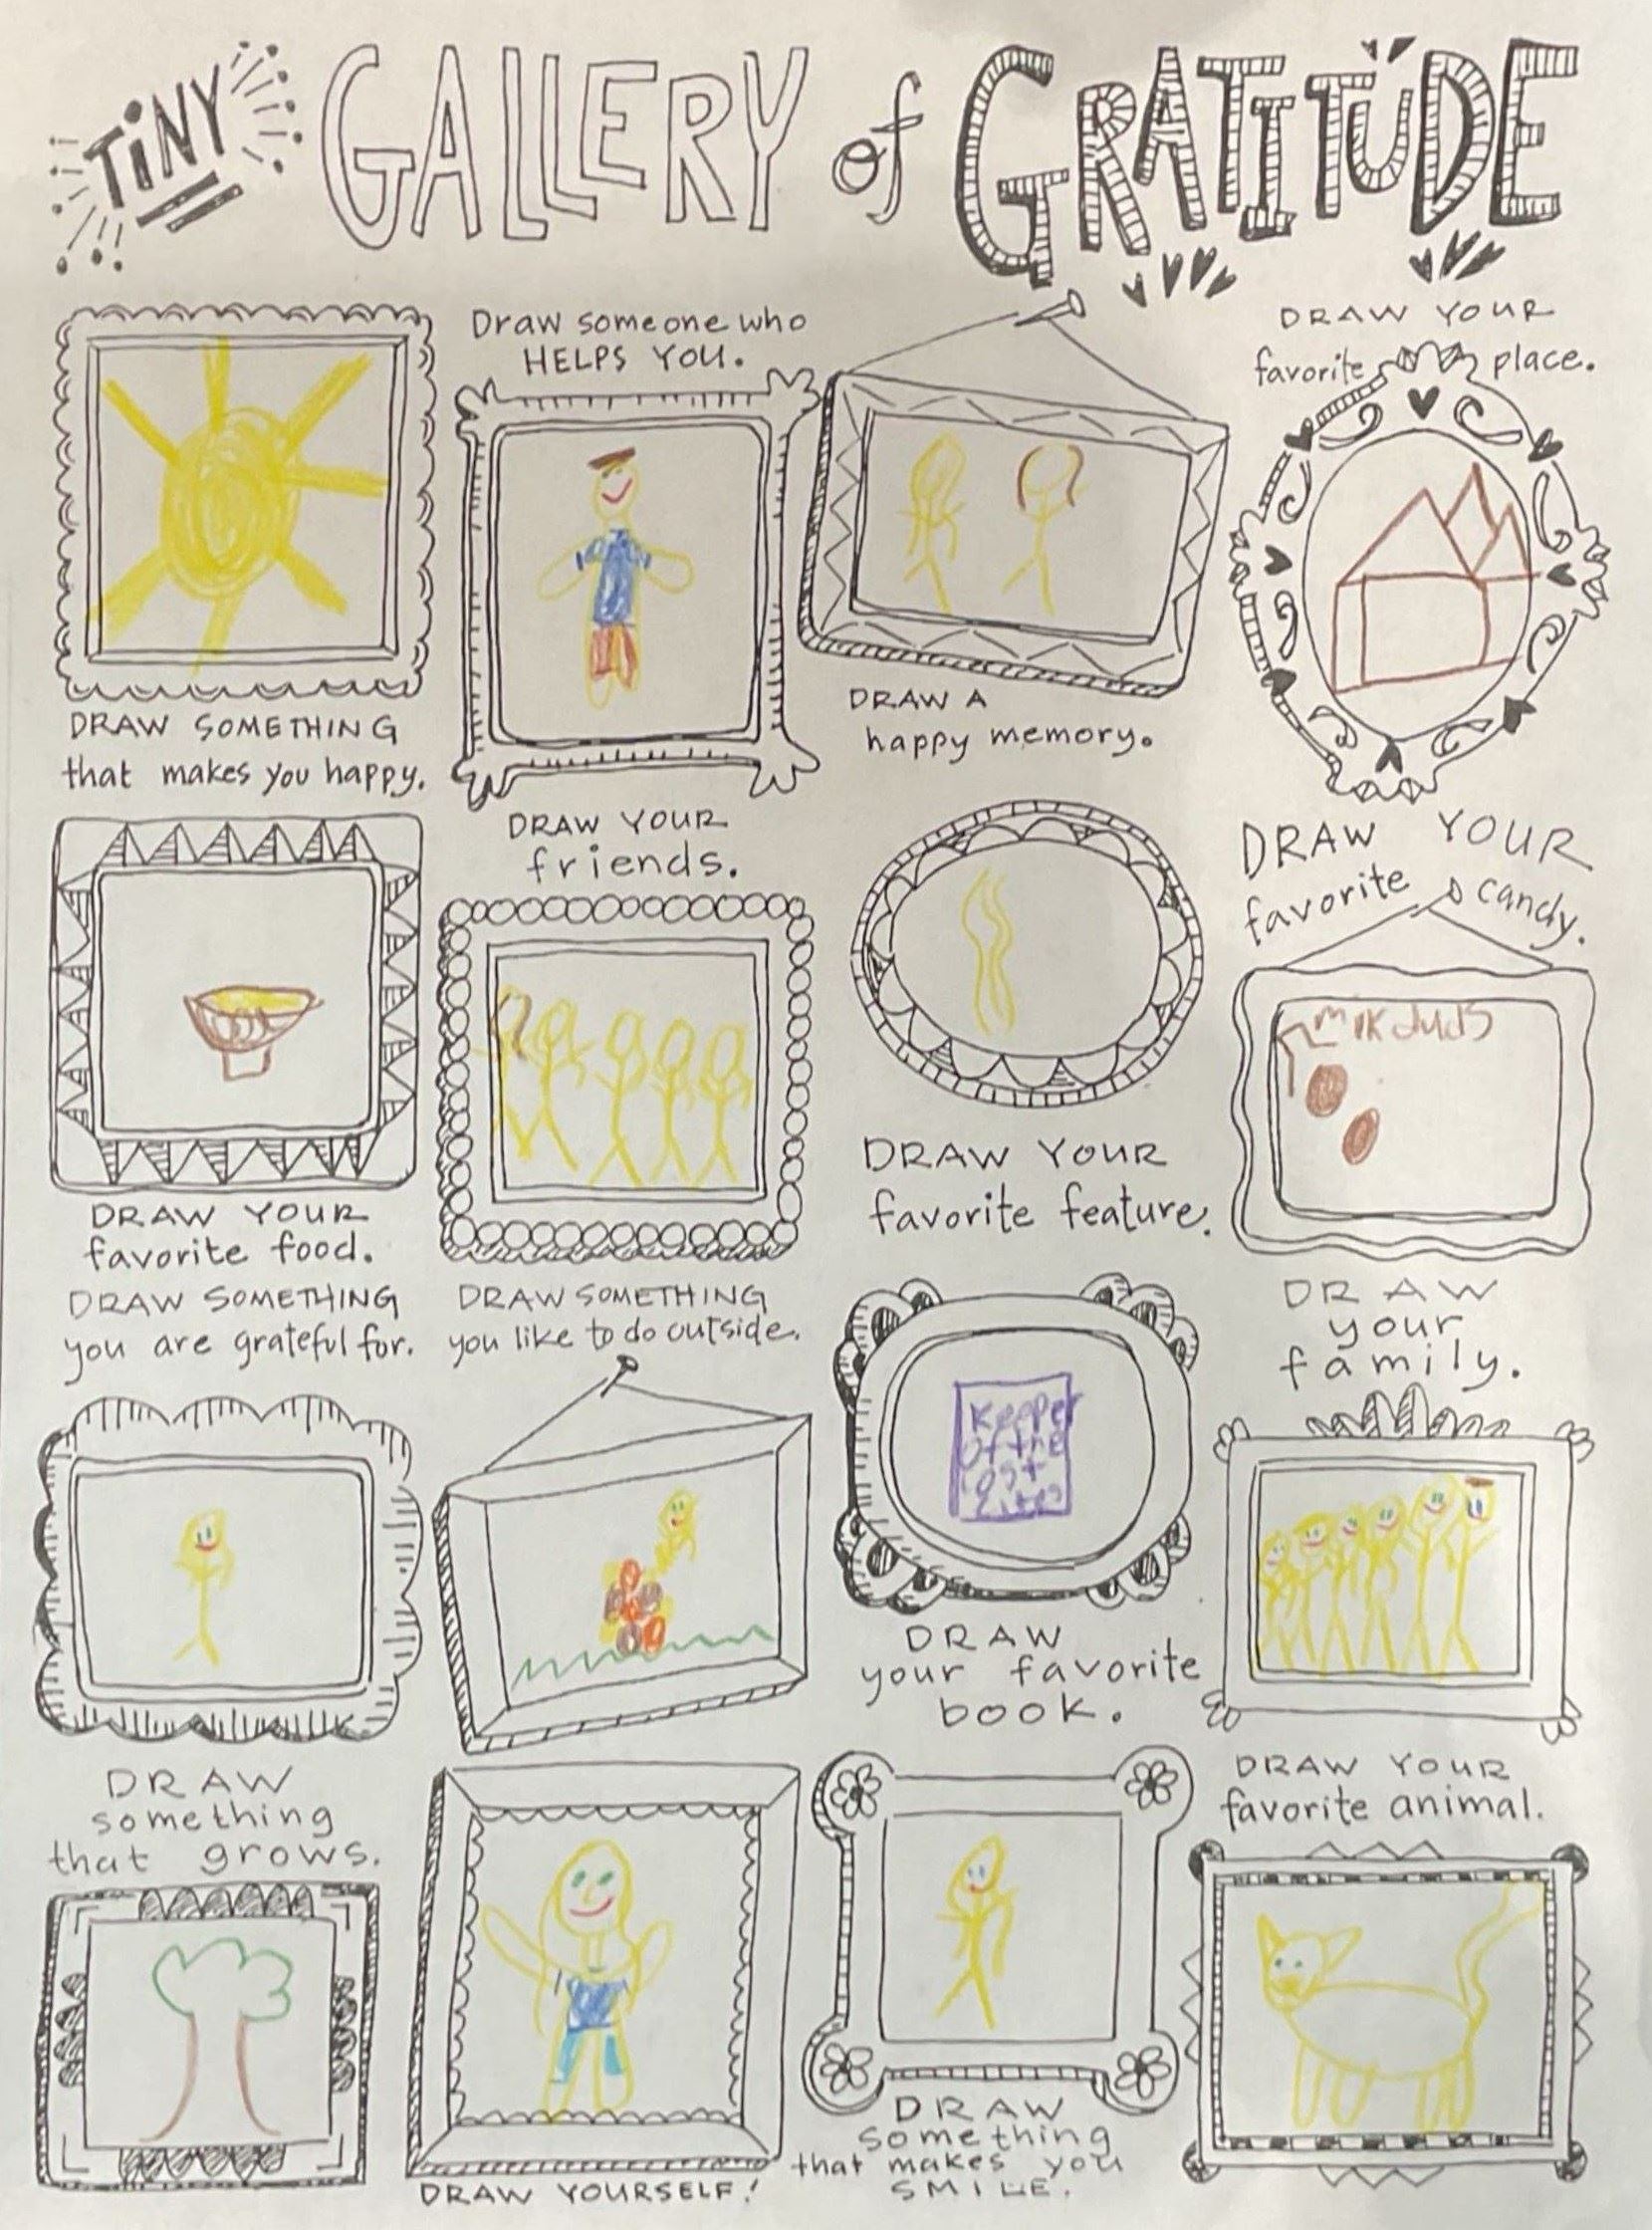 TiNY GALLERY of GRATITUDE
Draw someone who
HELPS YOU.
DRAW YOUR
favorite place.
DRAW SOMETHING
that makes you happy.
DRAW A
happy memory.
DRAW YOUR
friends.
DRAW YOUR
favorite candy.
milk duds
DRAW YOUR
favorite food.
DRAW YOUR
favorite feature.
DRAW SOMETHING
you are grateful for.
DRAW SOMETHING
you like to do outside.
DRAW
your
family.
Keeper
of the
lost
DRAW
your favorite
book.
DRAW
something
that grows.
DRAW YOUR
favorite animal.
DRAW YOURSELF!
DRAW
something
that makes you
SMILE.